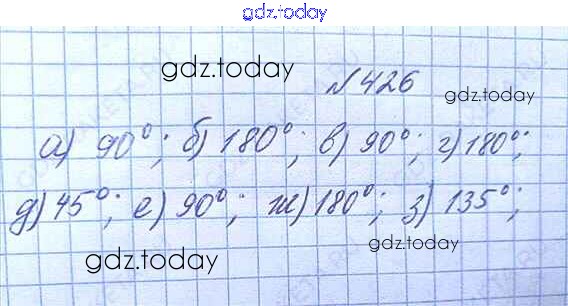 gdz.today
gdz.today
№426
gdz.today
а) 90°; б) 180°; в) 90°; г) 180°;
д) 45°; е) 90°; ж) 180°; з) 135°;
gdz.today
gdz.today